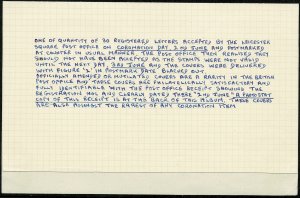 ONE OF QUANTITY OF 30 REGISTERED LETTERS ACCEPTED BY THE LEICESTER
SQUARE POST OFFICE ON CORONATION DAY, 2ND JUNE AND POSTMARKED
AT COUNTER IN USUAL MANNER. THE POST OFFICE THEN REALISED THEY
SHOULD NOT HAVE BEEN ACCEPTED AS THE STAMPS WERE NOT VALID
UNTIL THE NEXT DAY, 3RD JUNE AND THE COVERS WERE DELIVERED
WITH FIGURE '2' IN POSTMARK DATE BLACKED OUT.
OFFICIALLY AMENDED OR MUTILATED COVERS ARE A RARITY IN THE BRITISH
POST OFFICE AND THESE COVERS ARE PHILATELICALLY SATISFACTORY AND
FULLY IDENTIFIABLE WITH THE POST OFFICE RECEIPT SHOWING THE
REGISTRATION NOS AND CLEARLY DATED THERE "2ND JUNE" A PHOTOSTAT
COPY OF THIS RECEIPT IS AT THE BACK OF THIS ALBUM. THESE COVERS
ARE ALSO AMONGST THE RAREST OF ANY CORONATION ITEM